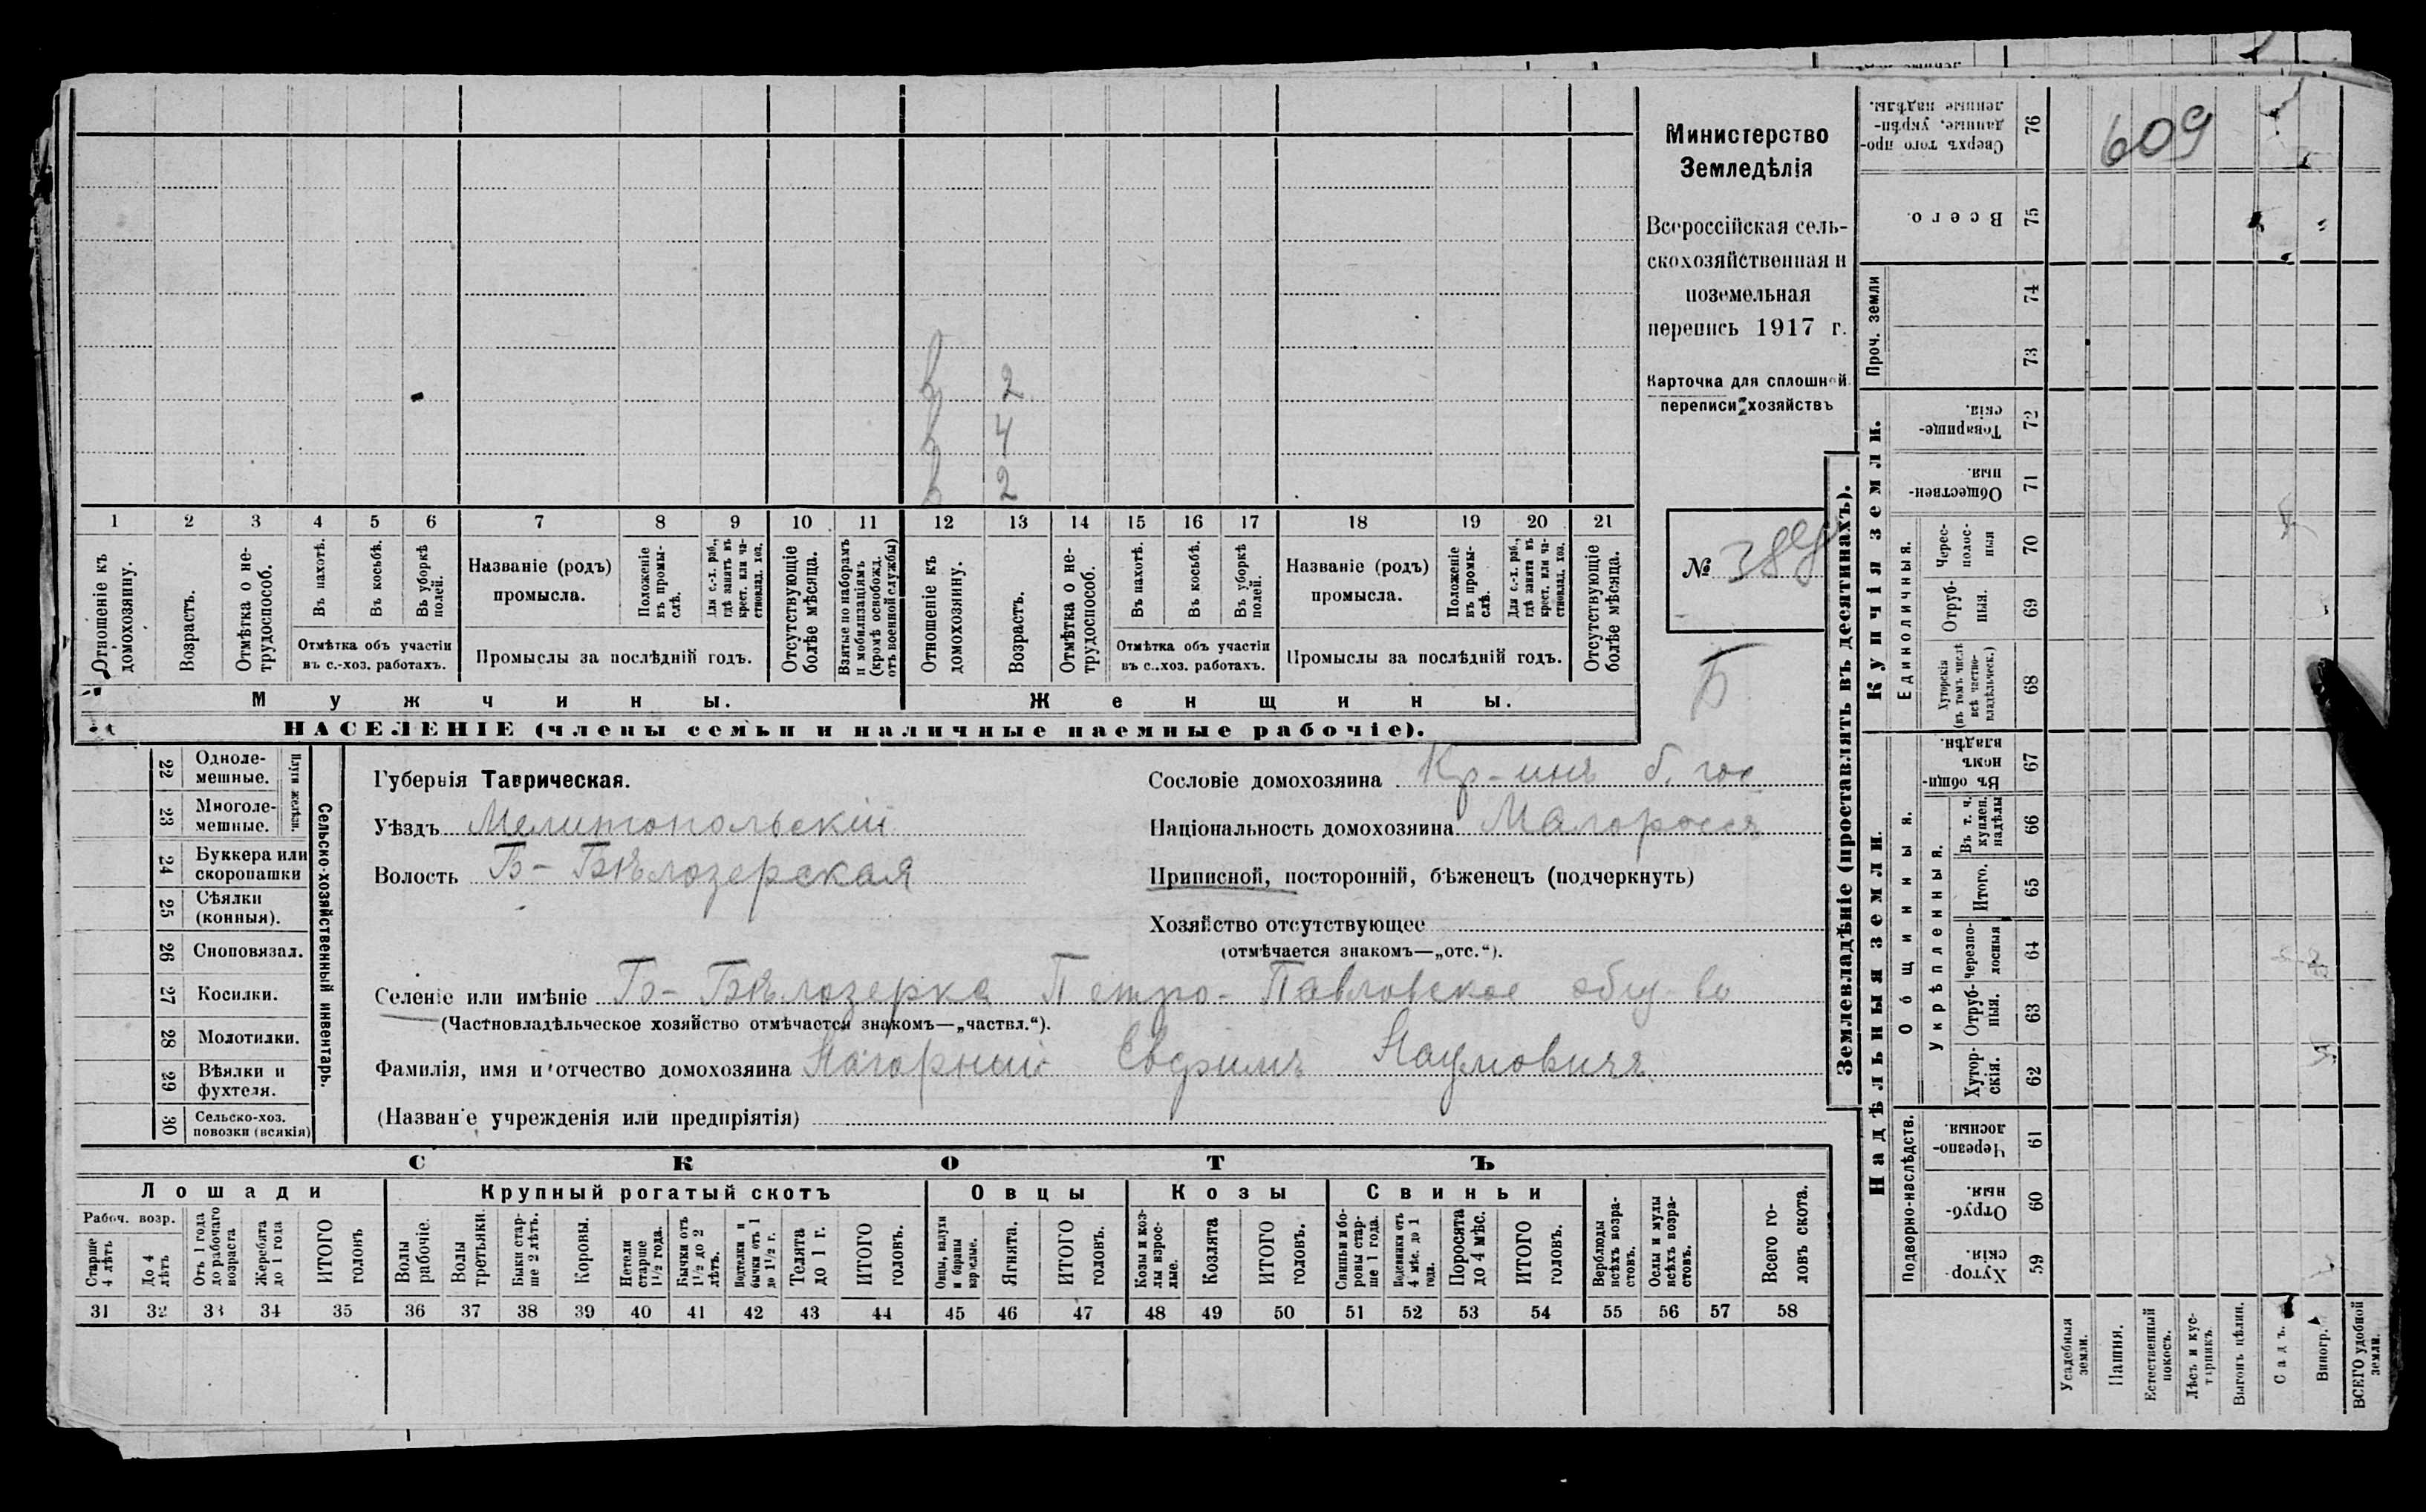 Министерство
Земледѣлія
Всероссійская сель-
скохозяйственная и
поземельная
перепись 1917 г.
Карточка для сплошной
переписи хозяйствъ
№ 389
Б
609
в 2
в 4
в 2
1 2 3 4 5 6 7 8 9 10 11 12 13 14 15 16 17 18 19 20 21
Отношеніе къ домохозяину.
Возрастъ.
Отмѣтка о не-трудоспособ.
Въ пахотѣ.
Въ косьбѣ.
Въ уборкѣ полей.
Отмѣтка объ участіи
въ с.-хоз. работахъ.
Названіе (родъ)
промысла.
Положеніе въ промы-слѣ.
Для с.-х. раб., гдѣ занятъ въ крест. или ча-стновлад. хоз.
Промыслы за послѣдній годъ.
Отсутствующіе болѣе мѣсяца.
Взятые по наборамъ и мобилизаціямъ (кромѣ освобожд. отъ военной службы)
Отношеніе къ домохозяину.
Возрастъ.
Отмѣтка о не-трудоспособ.
Въ пахотѣ.
Въ косьбѣ.
Въ уборкѣ полей.
Отмѣтка объ участіи
въ с.-хоз. работахъ.
Названіе (родъ)
промысла.
Положеніе въ промы-слѣ.
Для с.-х. раб., гдѣ занята въ крест. или ча-стновлад. хоз.
Промыслы за послѣдній годъ.
Отсутствующіе болѣе мѣсяца.
Мужчины. Женщины.
НАСЕЛЕНІЕ (члены семьи и наличные наемные рабочіе).
Сельско-хозяйственный инвентарь.
Плуги желѣзн.
22 Одноле-мешные.
23 Многоле-мешные.
24 Буккера или скоропашки
25 Сѣялки (конныя).
26 Сноповязал.
27 Косилки.
28 Молотилки.
29 Вѣялки и фухтеля.
30 Сельско-хоз. повозки (всякія)
Губернія Таврическая.
Уѣздъ Мелитопольскій
Волость Б-Бѣлозерская
Сословіе домохозяина Кр-инъ б. гос
Національность домохозяина Малороссъ
Приписной, посторонній, бѣженецъ (подчеркнуть)
Хозяйство отсутствующее
(отмѣчается знакомъ—„отс.“).
Селеніе или имѣніе Б-Бѣлозерка Петро-Павловское общ-во
(Частновладѣльческое хозяйство отмѣчается знакомъ—„частвл.“).
Фамилія, имя и отчество домохозяина Нагорный Евфимъ Наумовичъ
(Названіе учрежденія или предпріятія)
СКОТЪ
Лошади Крупный рогатый скотъ Овцы Козы Свиньи
Рабоч. возр.
Старше 4 лѣтъ
До 4 лѣтъ
Отъ 1 года до рабочаго возраста
Жеребята до 1 года
ИТОГО головъ
Волы рабочіе.
Волы третьяки.
Быки стар-ше 2 лѣтъ.
Коровы.
Нетели старше 1½ года.
Бычки отъ 1½ до 2 лѣтъ.
Подтелки и бычки отъ 1 до 1½ г.
Телята до 1 г.
ИТОГО головъ.
Овцы, валухи и бараны взрослые.
Ягнята.
ИТОГО головъ.
Козы и коз-лы взрос-лые.
Козлята
ИТОГО головъ.
Свиньи и бо-ровы стар-ше 1 года.
Подсвинки отъ 4 мѣс. до 1 года.
Поросята до 4 мѣс.
ИТОГО головъ.
Верблюды всѣхъ возра-стовъ.
Ослы и мулы всѣхъ возра-стовъ.
Всего го-ловъ скота.
31 32 33 34 35 36 37 38 39 40 41 42 43 44 45 46 47 48 49 50 51 52 53 54 55 56 57 58
Землевладѣніе (проставлять въ десятинахъ).
Надѣльныя земли. Купчія земли. Проч. земли
Подворно-наслѣдств.
Общинныя.
Укрѣпленныя.
Единоличныя.
59 Хутор-скія.
60 Отруб-ныя.
61 Черезпо-лосныя
62 Хутор-скія.
63 Отруб-ныя.
64 Черезпо-лосныя
65 Итого.
66 Въ т. ч. куплен. надѣлы
67 Въ общин-номъ владѣн.
68 Хуторскія (въ томъ числѣ всѣ частно-владѣльческ.)
69 Отруб-ныя.
70 Черес-полос-ныя
71 Обществен-ныя.
72 Товарище-скія.
73
74
75 Всего.
76 Сверхъ того про-данные, укрѣп-ленные надѣлы.
Усадебныя земли.
Пашня.
Естественный покосъ.
Лѣсъ и кус-тарникъ.
Выгонъ цѣлин.
Садъ.
Виногр.
ВСЕГО удобной земли.